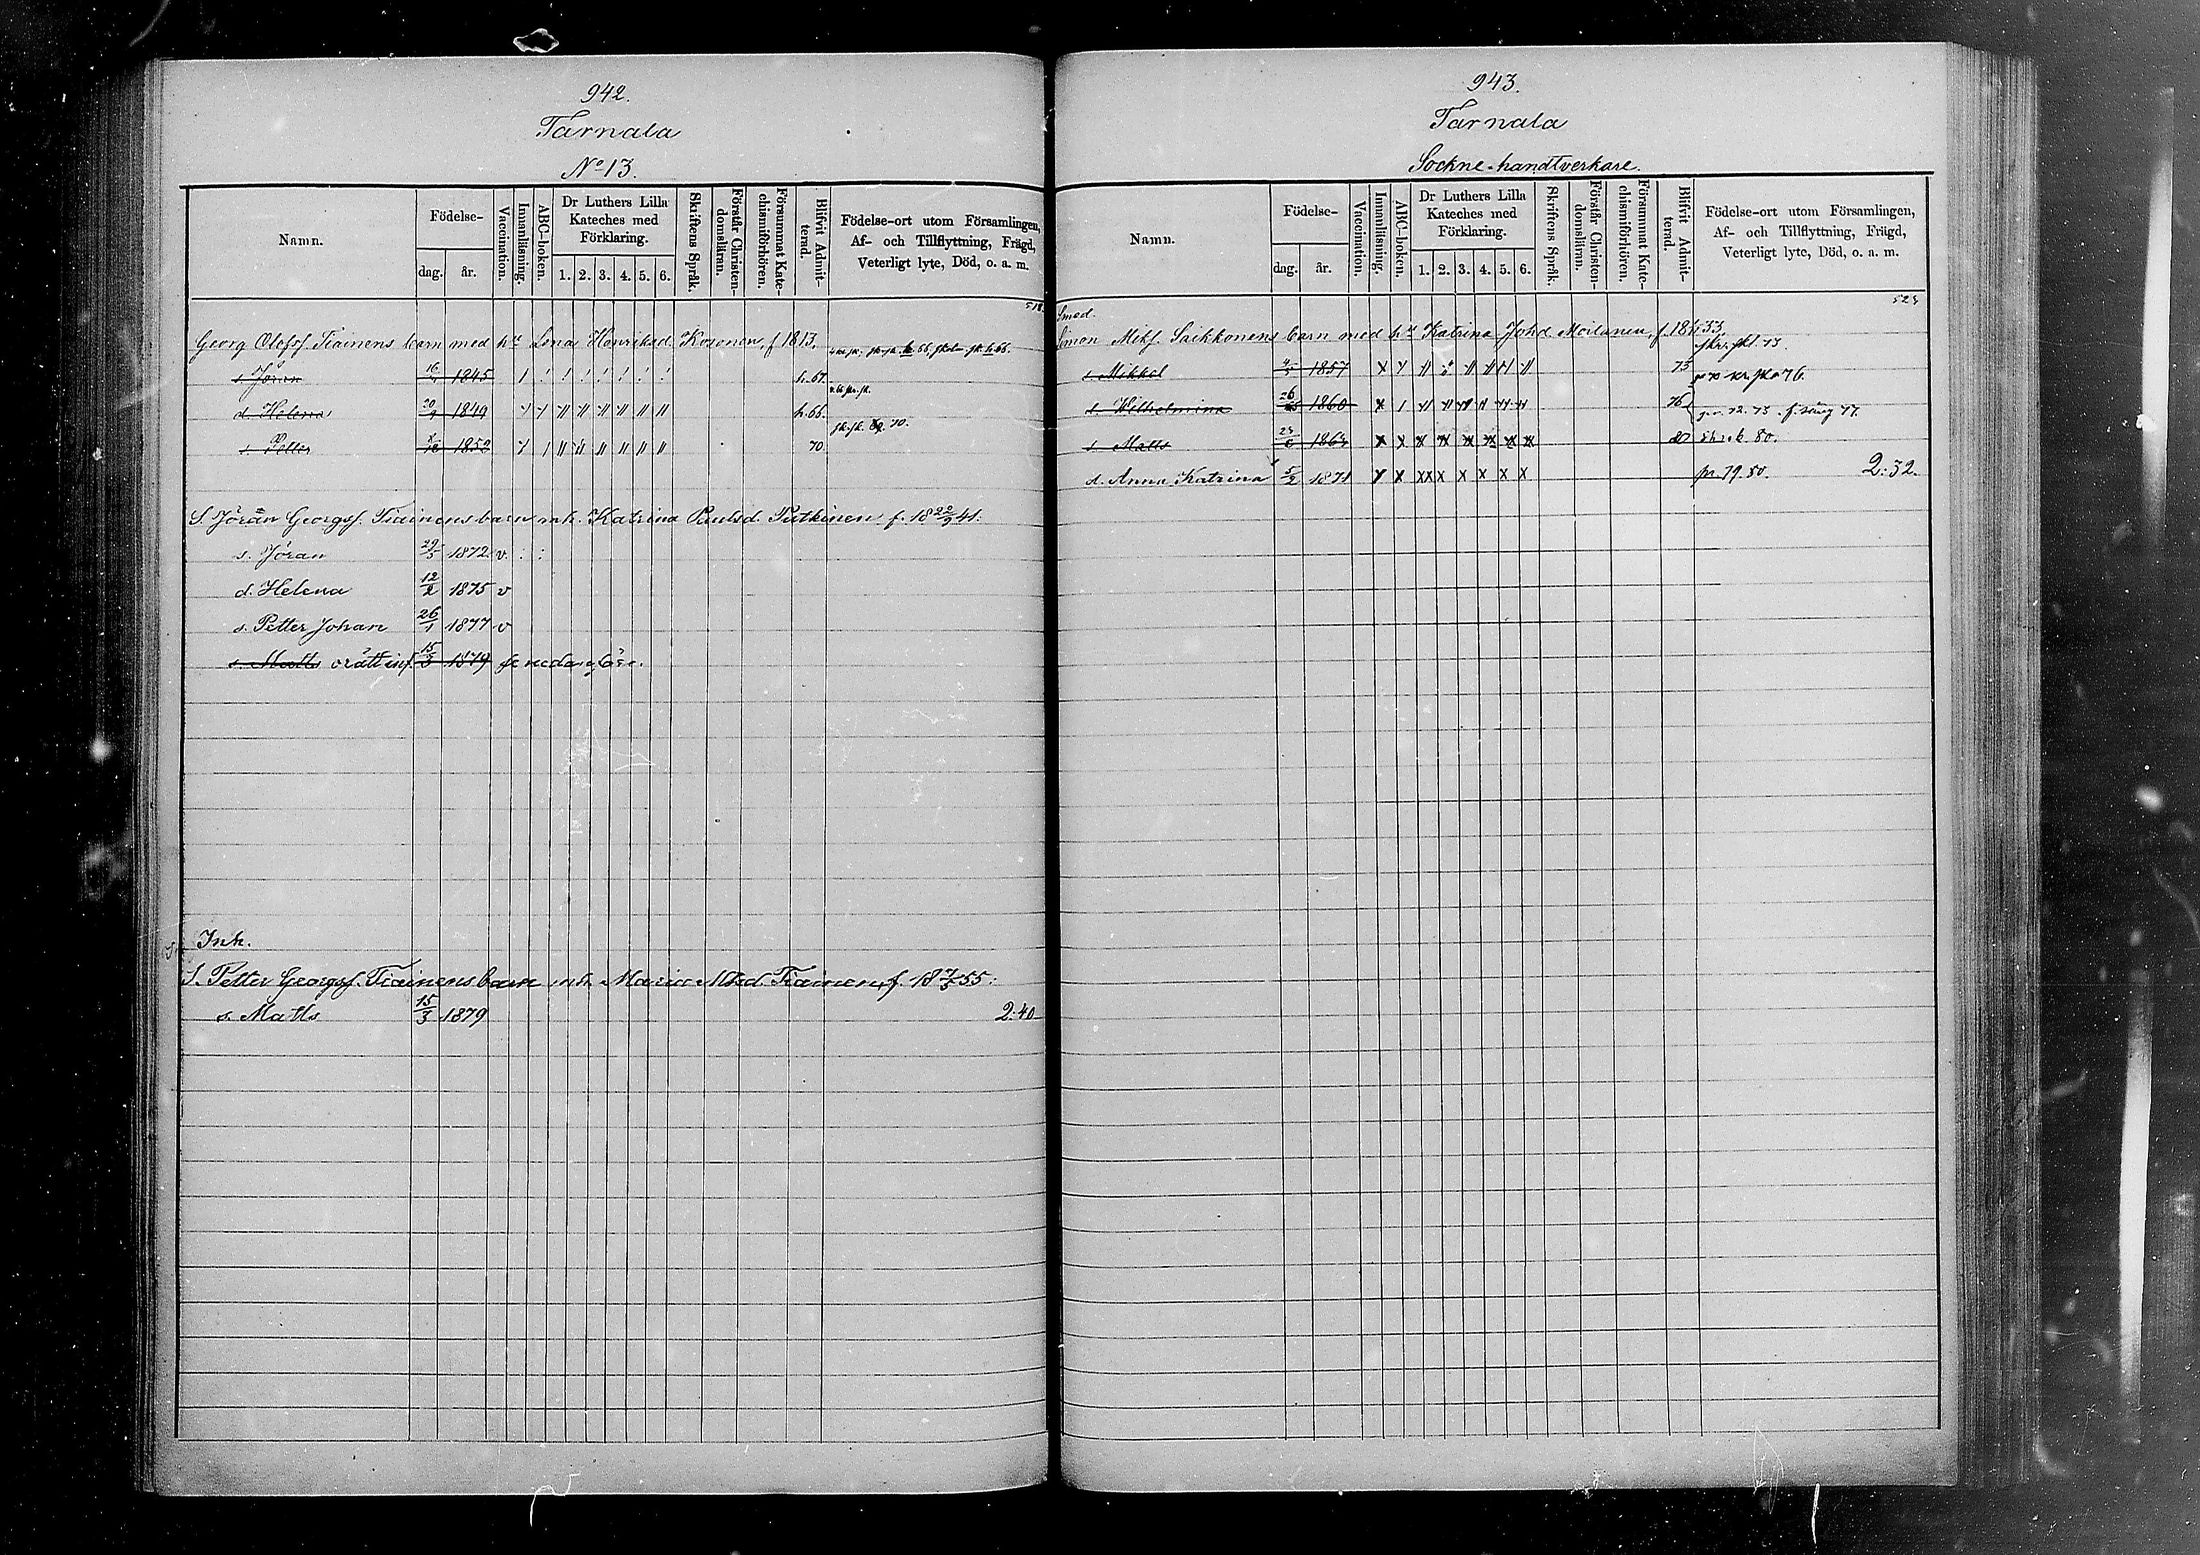 942.
Tarnala
No 13.
Namn.
Födelse-
dag.
år.
Vaccination.
Innanläsning.
ABC-boken.
Dr Luthers Lilla Kateches med Förklaring.
1. 2. 3. 4. 5. 6.
Skriftens Språk.
Förstår Christendomsläran.
Försummat Katechismiförhören.
Blifvit Admitterad.
Födelse-ort utom Församlingen,
Af- och Tillflyttning, Frägd,
Veterligt lyte, Död, o. a. m.
518.
Georg Olofsf. Tiainens barn med hu Lena Henriksd. Kosonen, f 1813.
s. Jöran 1845 h. 67.
d. Helena 20/9 1849 h. 66.
s. Petter 1852 70
S. Jöran Georgsf. Tiainens barn mh. Katrina Paulsd. Putkinen, f. 18 22/9 41.
s. Jöran 29/5 1872 v
d. Helena 12/2 1875 v
s. Petter Johan 26/1 1877 v
s. Matts orätt inf. 15/3 1879 se nedanföre.
Inh.
S. Petter Georgsf. Tiainens barn mh. Maria Mtsd. Tiainen, f. 18 7/5 55:
s. Matts 15/3 1879 2:40
943.
Tarnala
Sockne-handtverkare.
Namn.
Födelse-
dag.
år.
Vaccination.
Innanläsning.
ABC-boken.
Dr Luthers Lilla Kateches med Förklaring.
1. 2. 3. 4. 5. 6.
Skriftens Språk.
Förstår Christendomsläran.
Försummat Katechismiförhören.
Blifvit Admitterad.
Födelse-ort utom Församlingen,
Af- och Tillflyttning, Frägd,
Veterligt lyte, Död, o. a. m.
Smed.
Simon Mikf. Saikkonens barn med hu Katrina Johd. Moilanen, f. 33
s. Mikkel 1857 75
d. Wilhelmina 1860 76
s. Matts 1863 80.
d. Anna Katrina 5/2 1871 79. 80. 2:32.